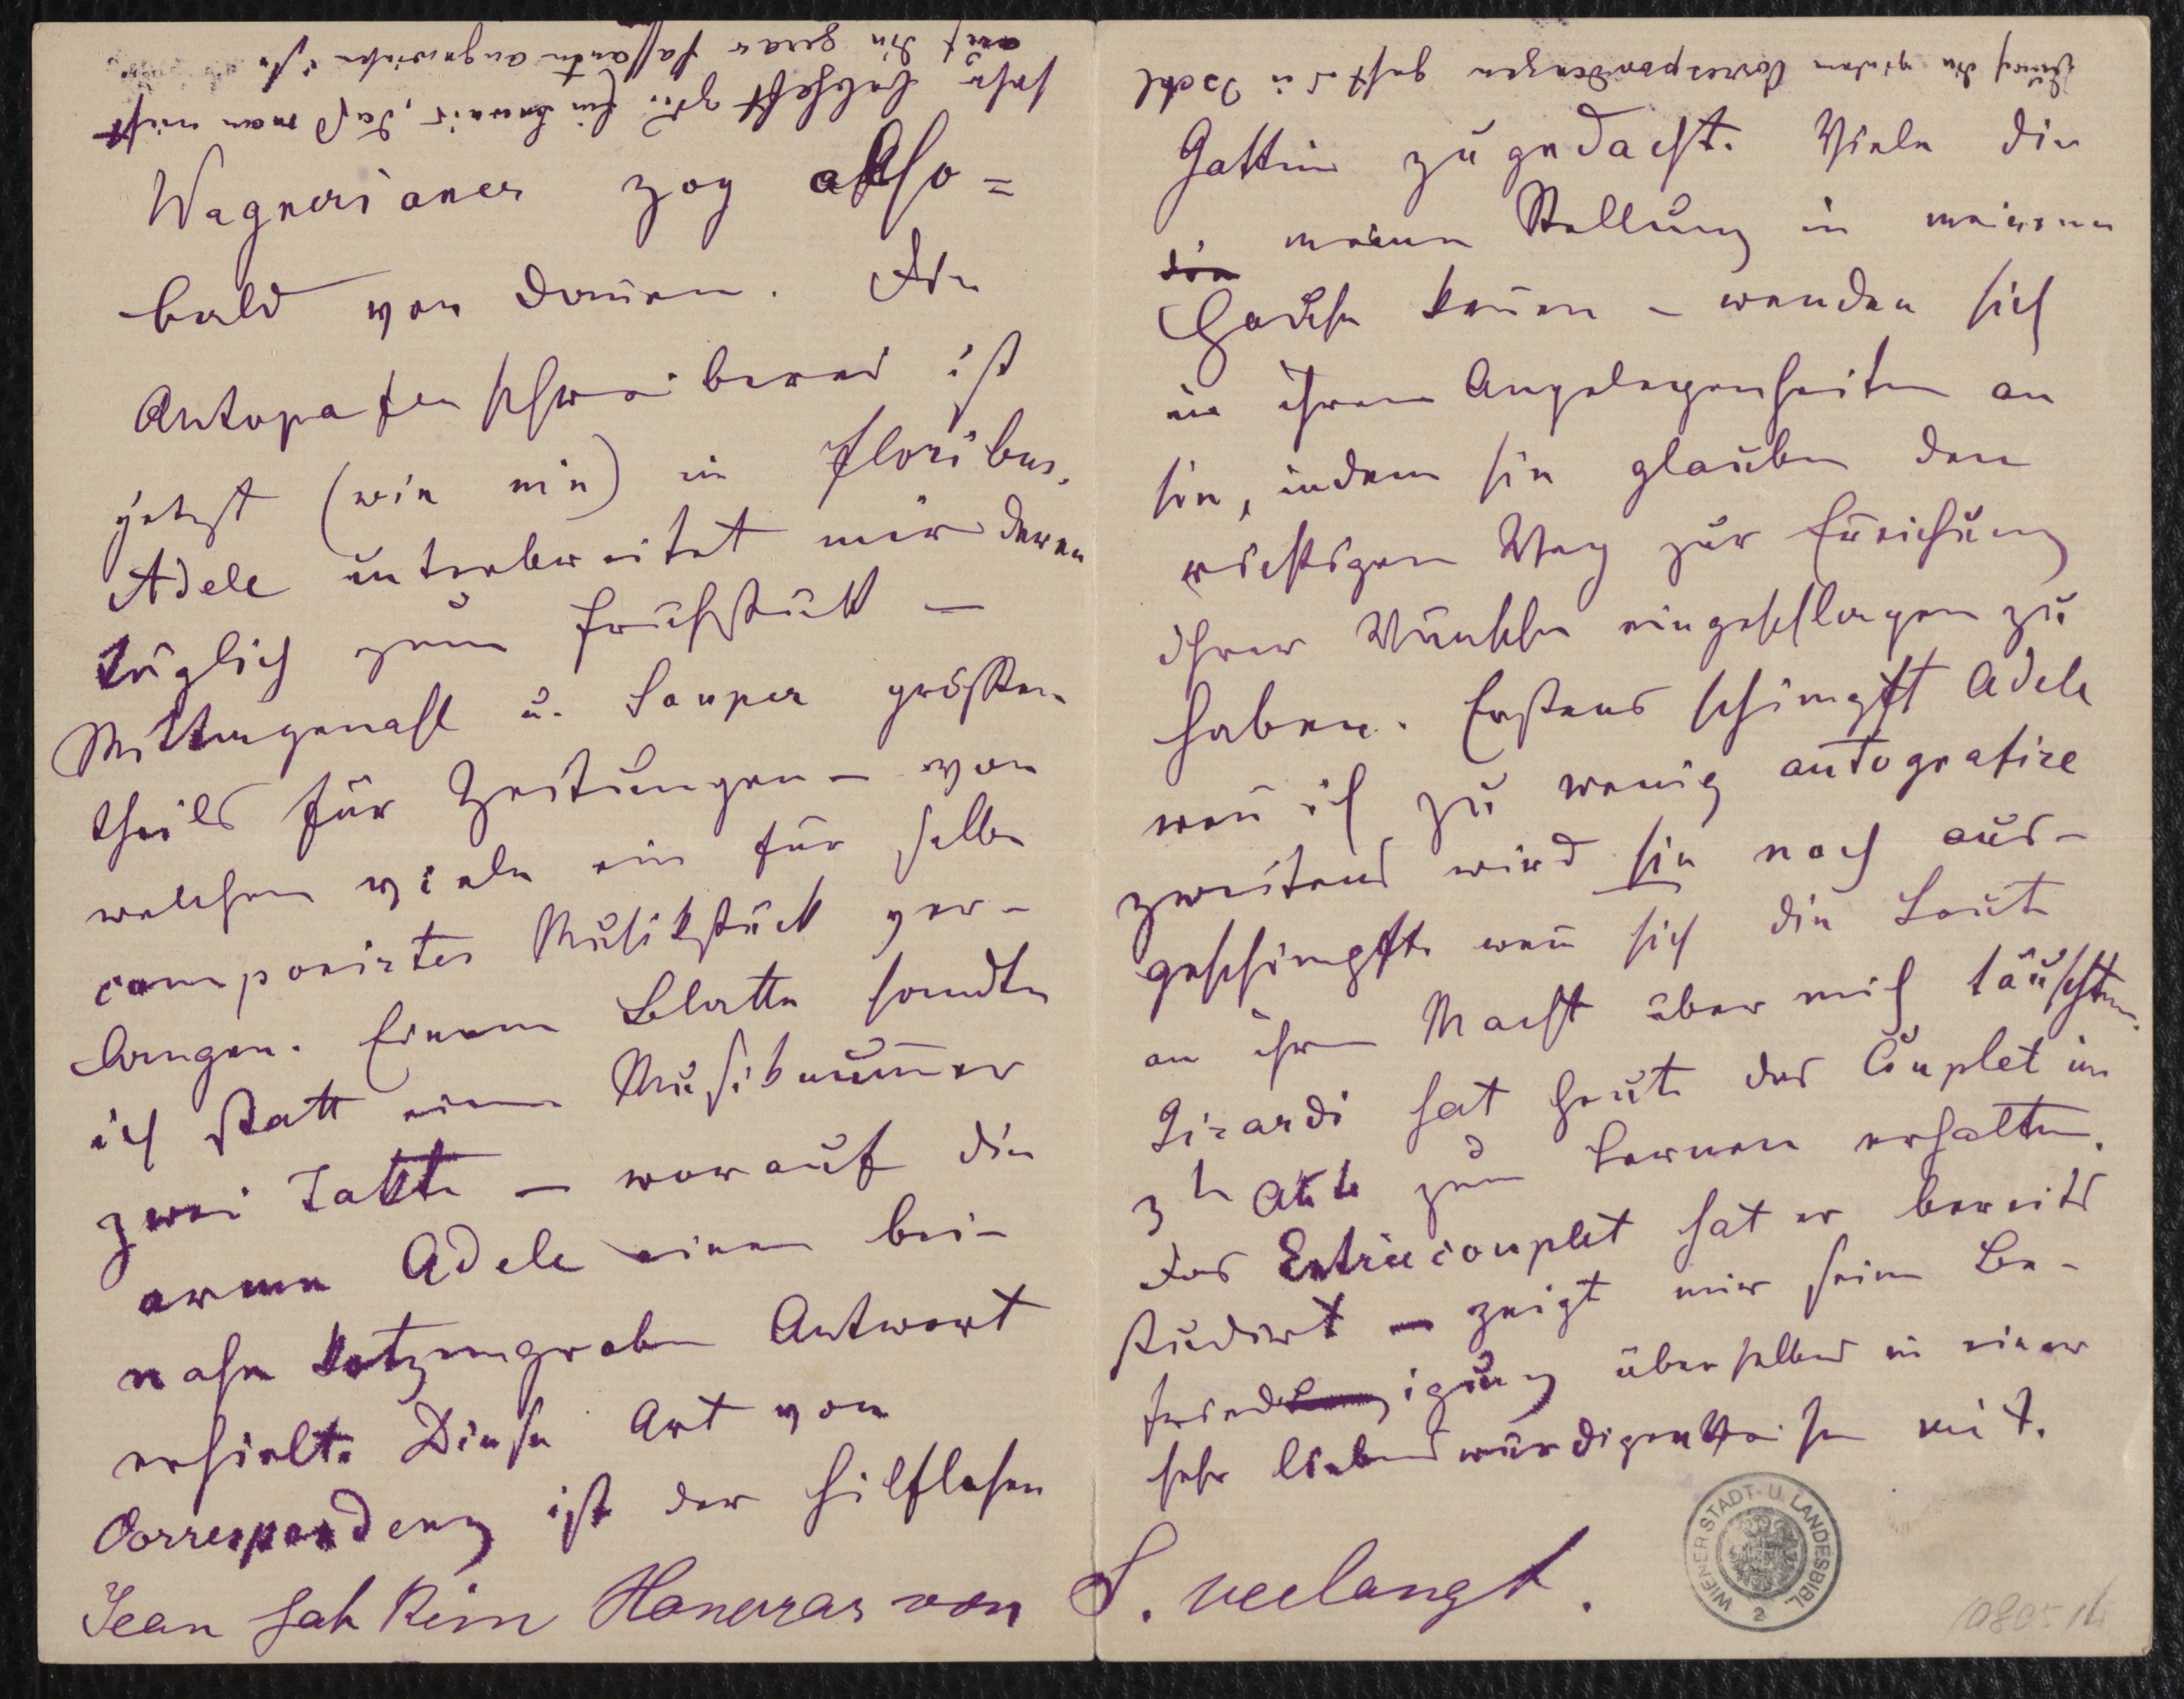 Wagnerianer zog also=
bald von dañen. Die
Autografenschreiberei ist
jetzt (wie nie) in floribus.
Adele unterbreitet mir deren
täglich zum Frühstück –
Mittagmahl u. Souper grössten
theils für Zeitungen – von
welchen viele ein für selbe
componirtes Musikstück ver-
langen. Einem Blatte sandte
ich statt einer Musiknum̄er
zwei Takte – worauf die
arme Adele eine bei-
nahe kotzengrobe Antwort
erhielt. Diese Art von
Correspondenz ist der hilflosen
Jean hat kein Honorar von S. verlangt.
Gattin zugedacht. Viele die
die meine Stellung in meinem
Hause keñen – wenden sich
in ihren Angelegenheiten an
sie, indem sie glauben den
richtigen Weg zur Erreichung
ihrer Wünsche eingeschlagen zu
haben. Erstens schimpft Adele
weñ ich zu wenig autografire
zweitens wird sie noch aus-
geschimpft weñ sich die Leute
an ihre Macht über mich täuschten.
Girardi hat heute das Couplet im
3t Akte zum Lernen erhalten.
Das Entréecouplet hat er bereits
studirt – zeigt mir seine Be-
friedigung über selbes in einer
sehr liebenswürdigen Weise mit.
Durch die vielen Correspondenzen geht es in Ischl
sehr lebhaft zu. Ein Beweis, daß man nicht
auf die
WIENER STADT- U. LANDESBIBL.
2